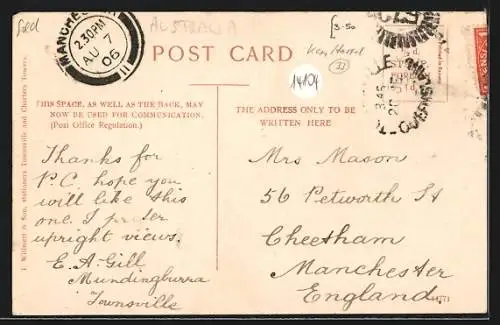 Sold
MANCHESTER
2.30PM
AU 7
06
11
AUSTRALIA
[3-50
POST CARD
14104
3.45
QUEENSLAND
THIS SPACE, AS WELL AS THE BACK, MAY
NOW BE USED FOR COMMUNICATION.
(Post Office Regulation.)
THE ADDRESS ONLY TO BE
WRITTEN HERE
T. Willmett & Son, stationers Townsville and Charters Towers.
Thanks for
P.C. hope you
will like this
one. I prefer
upright views.
E. A. Gill
Mundingburra
Townsville
Mrs Mason
56 Petworth St
Cheetham
Manchester
England